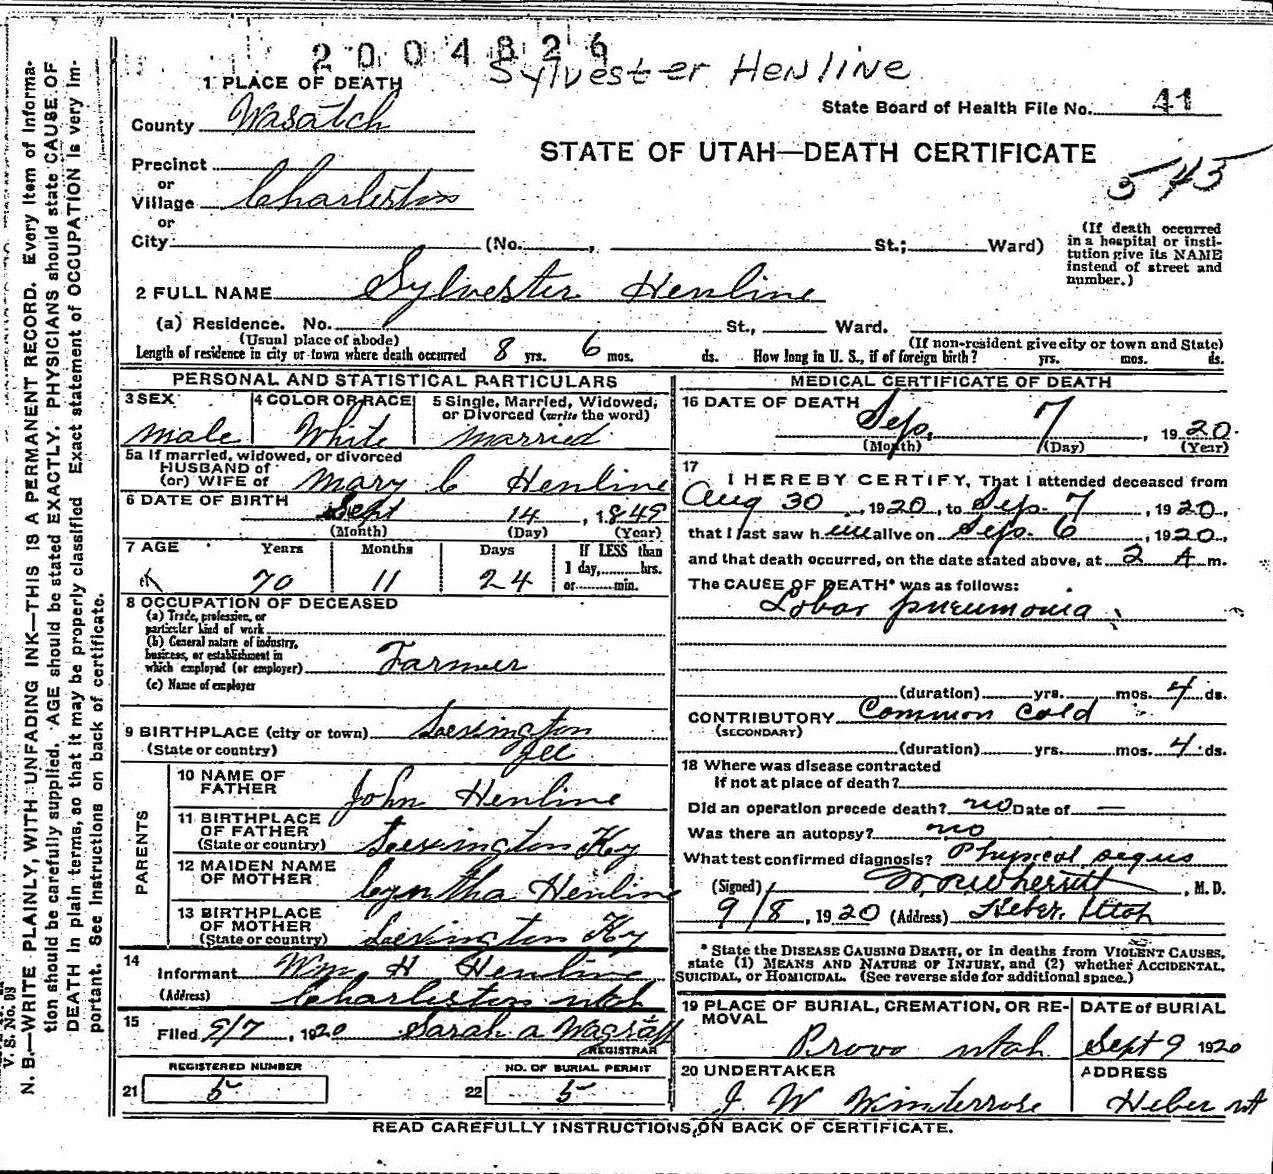 2004826
Sylvester Henline
1 PLACE OF DEATH
State Board of Health File No. 41
County Wasatch
STATE OF UTAH—DEATH CERTIFICATE
545
Precinct
or
Village Charleston
or
City (No. , St.; Ward)
(If death occurred in a hospital or institution give its NAME instead of street and number.)
2 FULL NAME Sylvester Henline
(a) Residence. No. St., Ward.
(Usual place of abode) (If non-resident give city or town and State)
Length of residence in city or town where death occurred 8 yrs. 6 mos. ds. How long in U. S., if of foreign birth? yrs. mos. ds.
PERSONAL AND STATISTICAL PARTICULARS
3 SEX 4 COLOR OR RACE 5 Single, Married, Widowed,
or Divorced (write the word)
male White married
5a If married, widowed, or divorced
HUSBAND of
(or) WIFE of Mary C Henline
6 DATE OF BIRTH
Sept 14, 1849
(Month) (Day) (Year)
7 AGE Years Months Days If LESS than
1 day, hrs.
70 11 24 or min.
8 OCCUPATION OF DECEASED
(a) Trade, profession, or
particular kind of work
(b) General nature of industry,
business, or establishment in
which employed (or employer) Farmer
(c) Name of employer
9 BIRTHPLACE (city or town) Lexington
(State or country) Ill
PARENTS
10 NAME OF
FATHER John Henline
11 BIRTHPLACE
OF FATHER
(State or country) Lexington Ky
12 MAIDEN NAME
OF MOTHER Cyntha Henline
13 BIRTHPLACE
OF MOTHER
(State or country) Lexington Ky
14
Informant Wm. H Henline
(Address) Charleston utah
15
Filed 9/7, 1920 Sarah a Wagstaff
REGISTRAR
REGISTERED NUMBER NO. OF BURIAL PERMIT
21 5 22 5
MEDICAL CERTIFICATE OF DEATH
16 DATE OF DEATH
Sep. 7, 1920.
(Month) (Day) (Year)
17
I HEREBY CERTIFY, That I attended deceased from
Aug 30, 1920, to Sep. 7, 1920,
that I last saw him alive on Sep. 6, 1920,
and that death occurred, on the date stated above, at 2 A m.
The CAUSE OF DEATH* was as follows:
Lobar pneumonia
(duration) yrs. mos. 4 ds.
CONTRIBUTORY Common Cold
(SECONDARY)
(duration) yrs. mos. 4 ds.
18 Where was disease contracted
if not at place of death?
Did an operation precede death? no Date of —
Was there an autopsy? no
What test confirmed diagnosis? Physical signs
(Signed) Wherritt, M. D.
9/8, 1920 (Address) Heber, Utah
* State the DISEASE CAUSING DEATH, or in deaths from VIOLENT CAUSES,
state (1) MEANS AND NATURE OF INJURY, and (2) whether ACCIDENTAL,
SUICIDAL, or HOMICIDAL. (See reverse side for additional space.)
19 PLACE OF BURIAL, CREMATION, OR RE-
MOVAL
Provo utah
DATE of BURIAL
Sept 9 1920
20 UNDERTAKER
J. W Winterrose
ADDRESS
Heber ut
READ CAREFULLY INSTRUCTIONS ON BACK OF CERTIFICATE.
N. B.—WRITE PLAINLY, WITH UNFADING INK—THIS IS A PERMANENT RECORD. Every item of informa-
tion should be carefully supplied. AGE should be stated EXACTLY. PHYSICIANS should state CAUSE OF
DEATH in plain terms, so that it may be properly classified Exact statement of OCCUPATION is very im-
portant. See instructions on back of certificate.